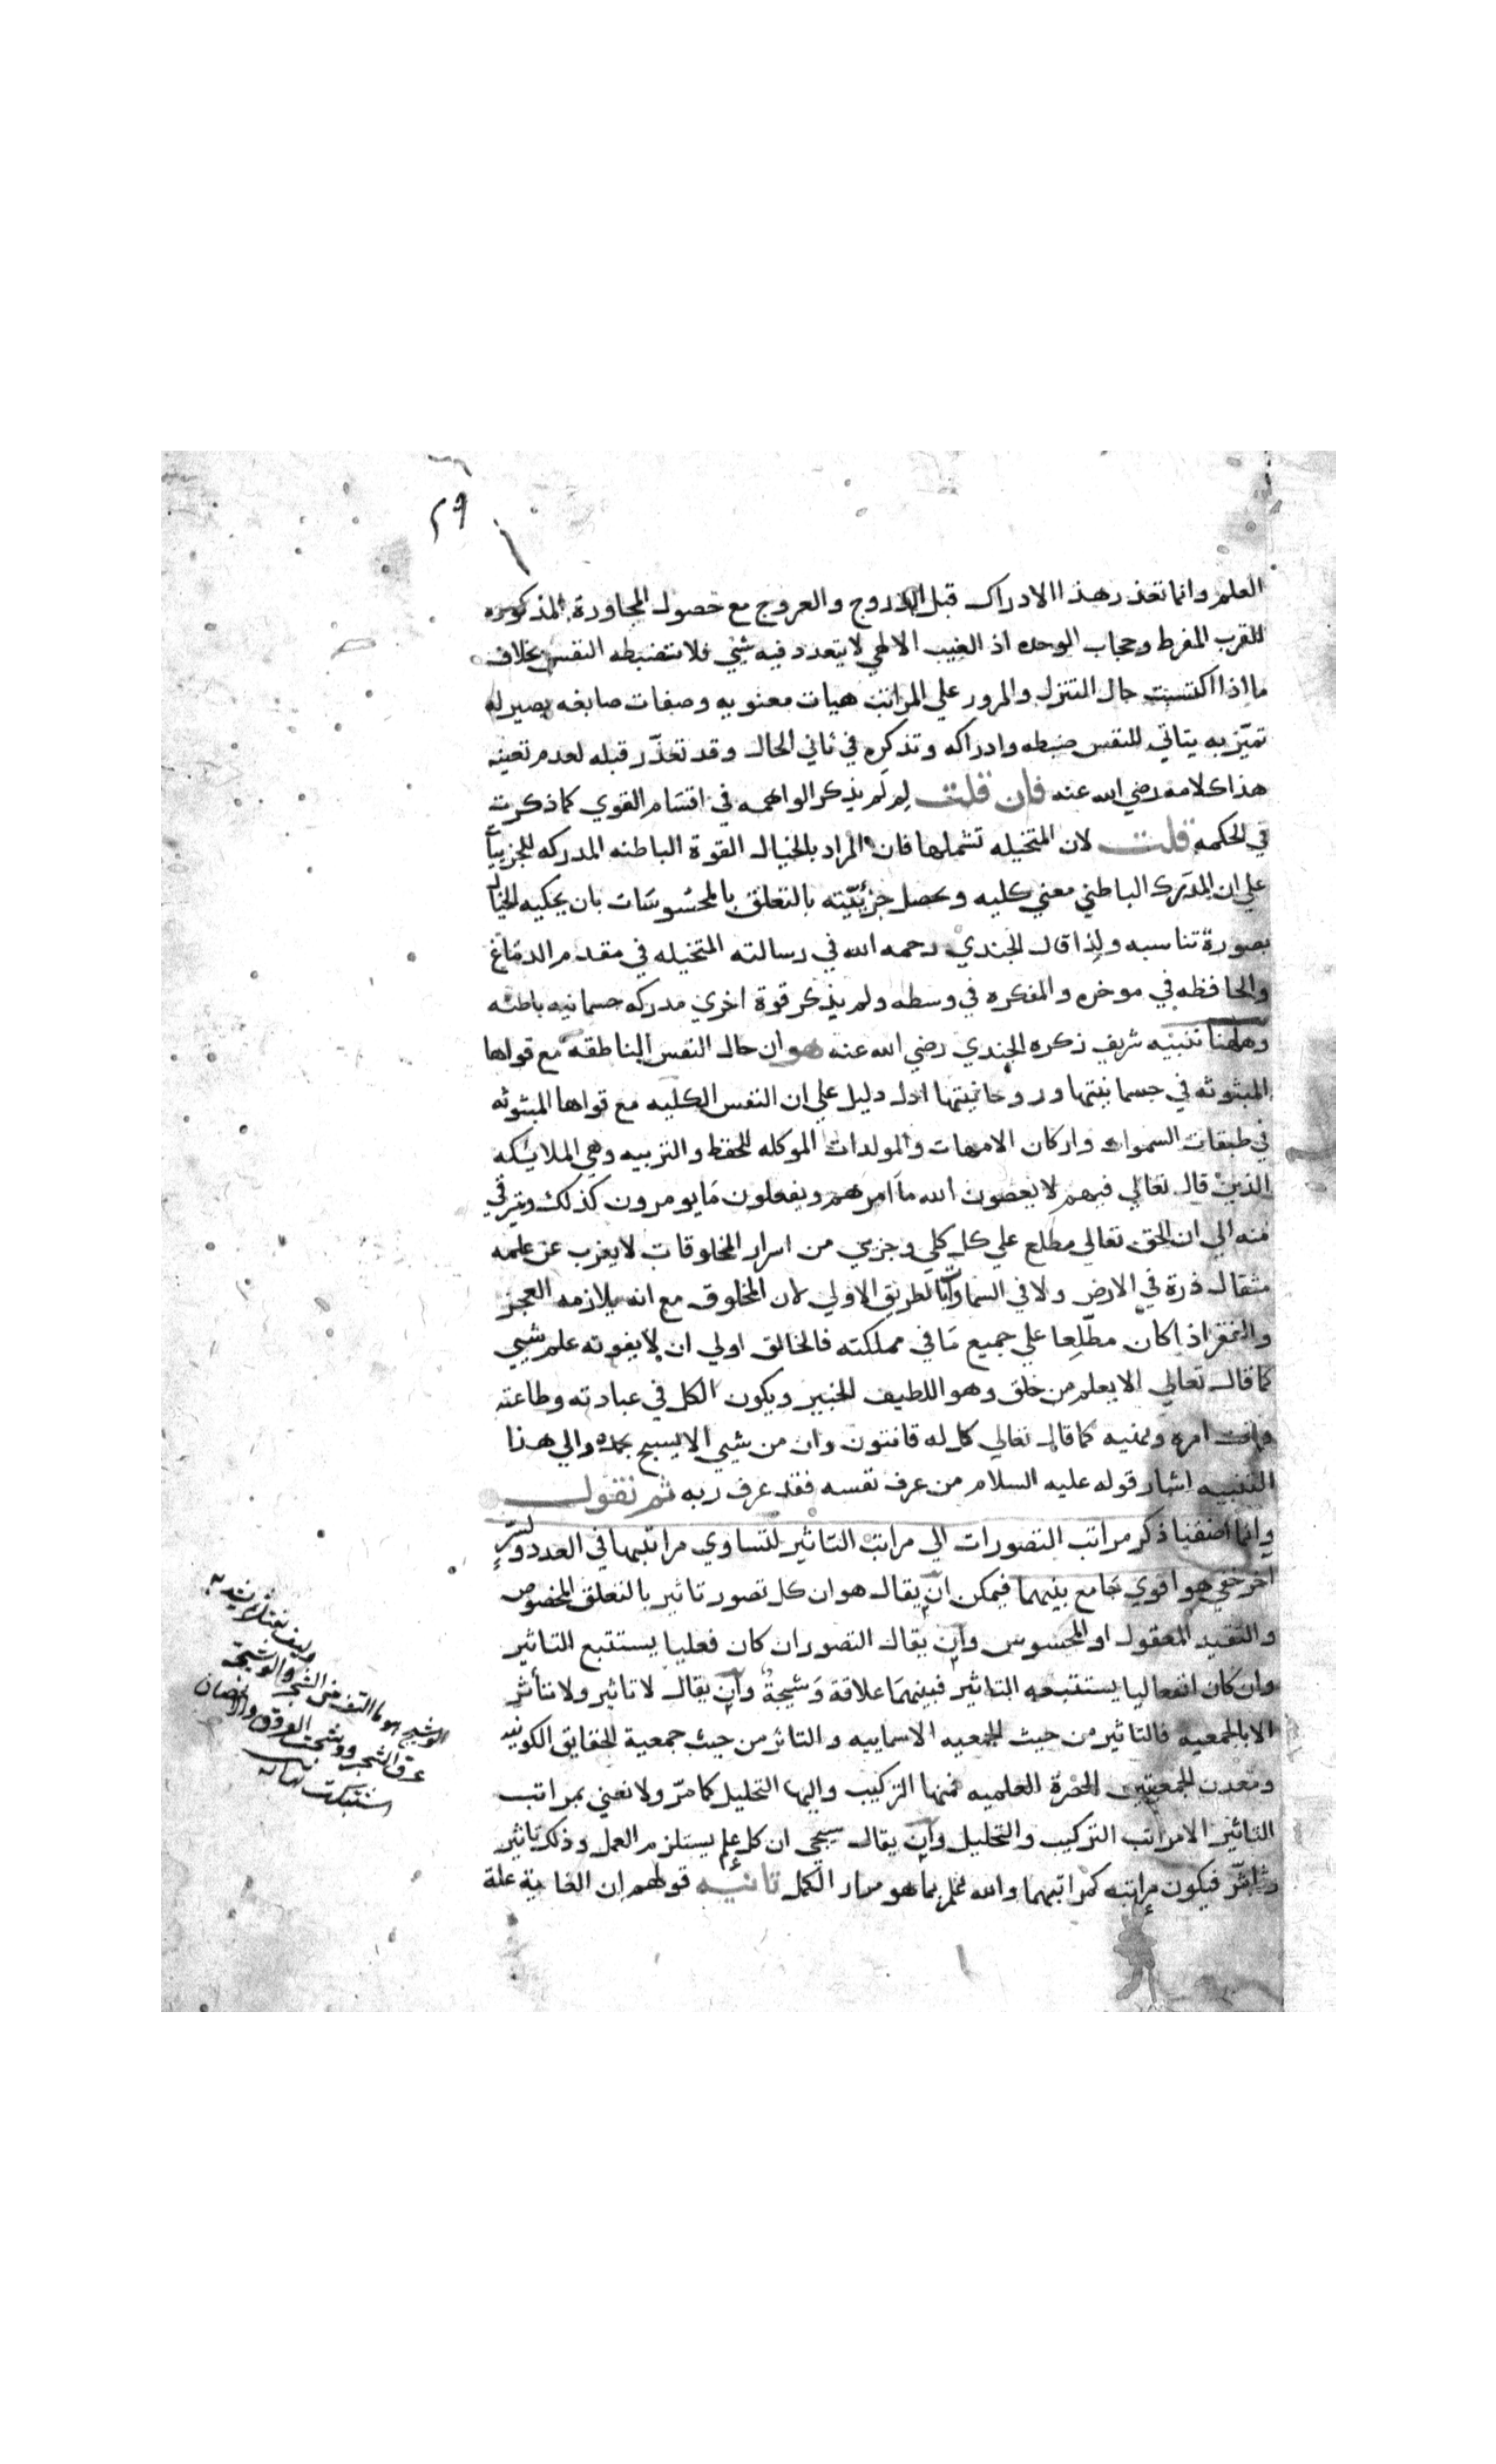 ٢٩
العلم وانما تعذر هذا الادراك قبل الدروج والعروج مع حصول المجاورة المذكوره
للقرب المفرط وحجاب الوحده اذ الغيب الالهي لا يتعدد فيه شيي فلا تنضبطه النفس بخلاف
ما اذا اكتسبت حال التنزل والمرور علي المراتب هيات معنويه وصفات صابغه يصير له
تميّز به يتاتي للنفس ضبطه وادراكه وتذكره في ثاني الحال وقد تعذّر قبله لعدم تعينه
هذا كلامه رضي الله عنه فان قلت لِمَ لم يذكر الواهمه في اقسام القوي كما ذكرت
في الحكمه قلت لان المتخيله تشملها فان المراد بالخيال القوة الباطنه المدركه للجزييات
علي ان المدرك الباطني معني كليه ويحصل جزئيّته بالتعلق بالمحسوسات بان يحكيه الخيال
بصورة تناسبه ولذا قال الجندي رحمه الله في رسالته المتخيله في مقدم الدماغ
والحافظه في موخره والمفكره في وسطه ولم يذكر قوة اخري مدركه جسمانيه باطنه
وههنا تنبيه شريف ذكره الجندي رضي الله عنه هو ان حال النفس الناطقه مع قواها
المبثوثه في جسمانيتها وروحانيتها ادل دليل علي ان النفس الكليه مع قواها المبثوثه
في طبقات السموات واركان الامهات والمولدات الموكله للحفظ والتربيه وهي الملائيكه
الذين قال تعالي فيهم لا يعصون الله ما امرهم ويفعلون ما يومرون كذلك ويترقي
منه الي ان الحق تعالي مطلع علي كل كلي وجزيي من اسرار المخلوقات لا يعزب عن علمه
مثقال ذرة في الارض ولا في السماوات بالطريق الاولي لان المخلوق مع انه يلازمه العجز
والفقر اذا كان مطّلعا علي جميع ما في مملكته فالخالق اولي ان لا يفوته علم شيي
كما قال تعالي الا يعلم من خلق وهو اللطيف الخبير ويكون الكل في عبادته وطاعته
وتحت امره ونهيه كما قال تعالي كل له قانتون وان من شيي الا يسبح بحمده والي هذا
التنبيه اشار قوله عليه السلام من عرف نفسه فقد عرف ربه ثم نقول
وانما اضفنا ذكر مراتب التصورات الي مراتب التاثير لتساوي مراتبهما في العدد ولسرّ
اخر خفي هو اقوي جامع بينهما فيمكن ان يقال هو ان كل تصور تاثير بالتعلق المخصوص
والتقيد المعقول او المحسوس وان يقال التصور ان كان فعليا يستتبع التاثير
وان كان انفعاليا يستتبعه التاثير فبينهما علاقة وشيجةٌ وان يقال لا تاثير ولا تأثر
الا بالجمعيه فالتاثير من حيث الجمعيه الاسماييه والتاثر من حيث جمعية الحقايق الكونيه
ومعدن الجمعيتين الحضرة العلميه فمنها التركيب واليها التحليل كما مرّ ولا نعني بمراتب
التاثير الا مراتب التركيب والتحليل وان يقال سيجي ان كل علم يستلزم العمل وذلك تاثير
وتاثّر فيكون مراتبه كمراتبهما والله اعلم بما هو مراد الكمل تانيه قولهم ان الغاية علة
وليف يفتل ثم يشد به
الوشيج هو ما التف من الشجر والوشيجة
عرق الشجر ووشجت العروق والاغصان
اشتبكت